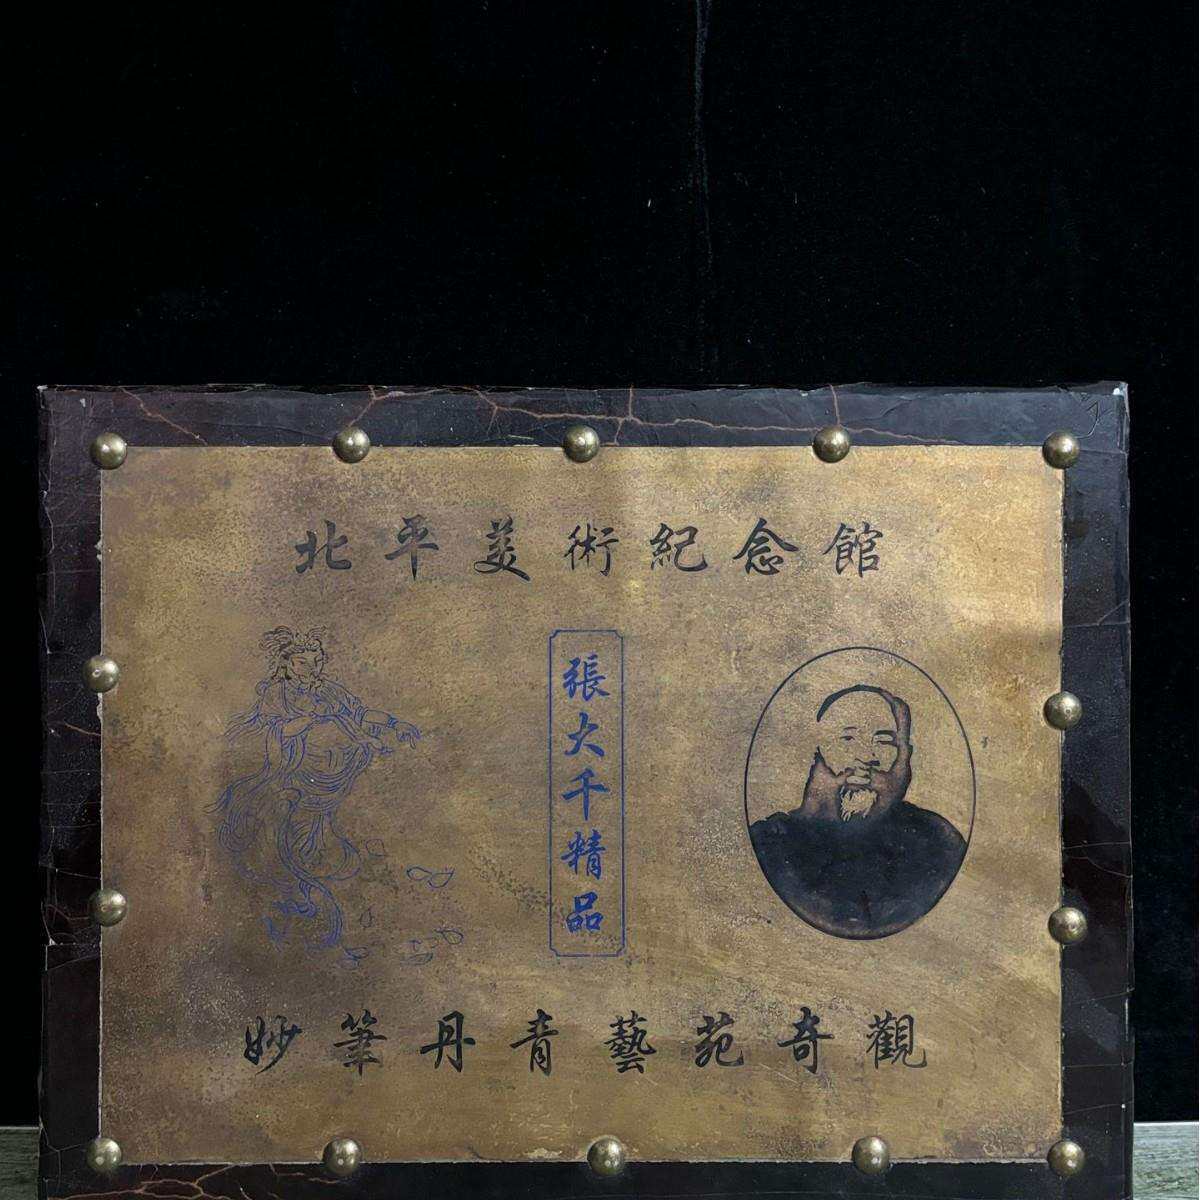 北平美術紀念館
張大千精品
妙筆丹青藝苑奇觀